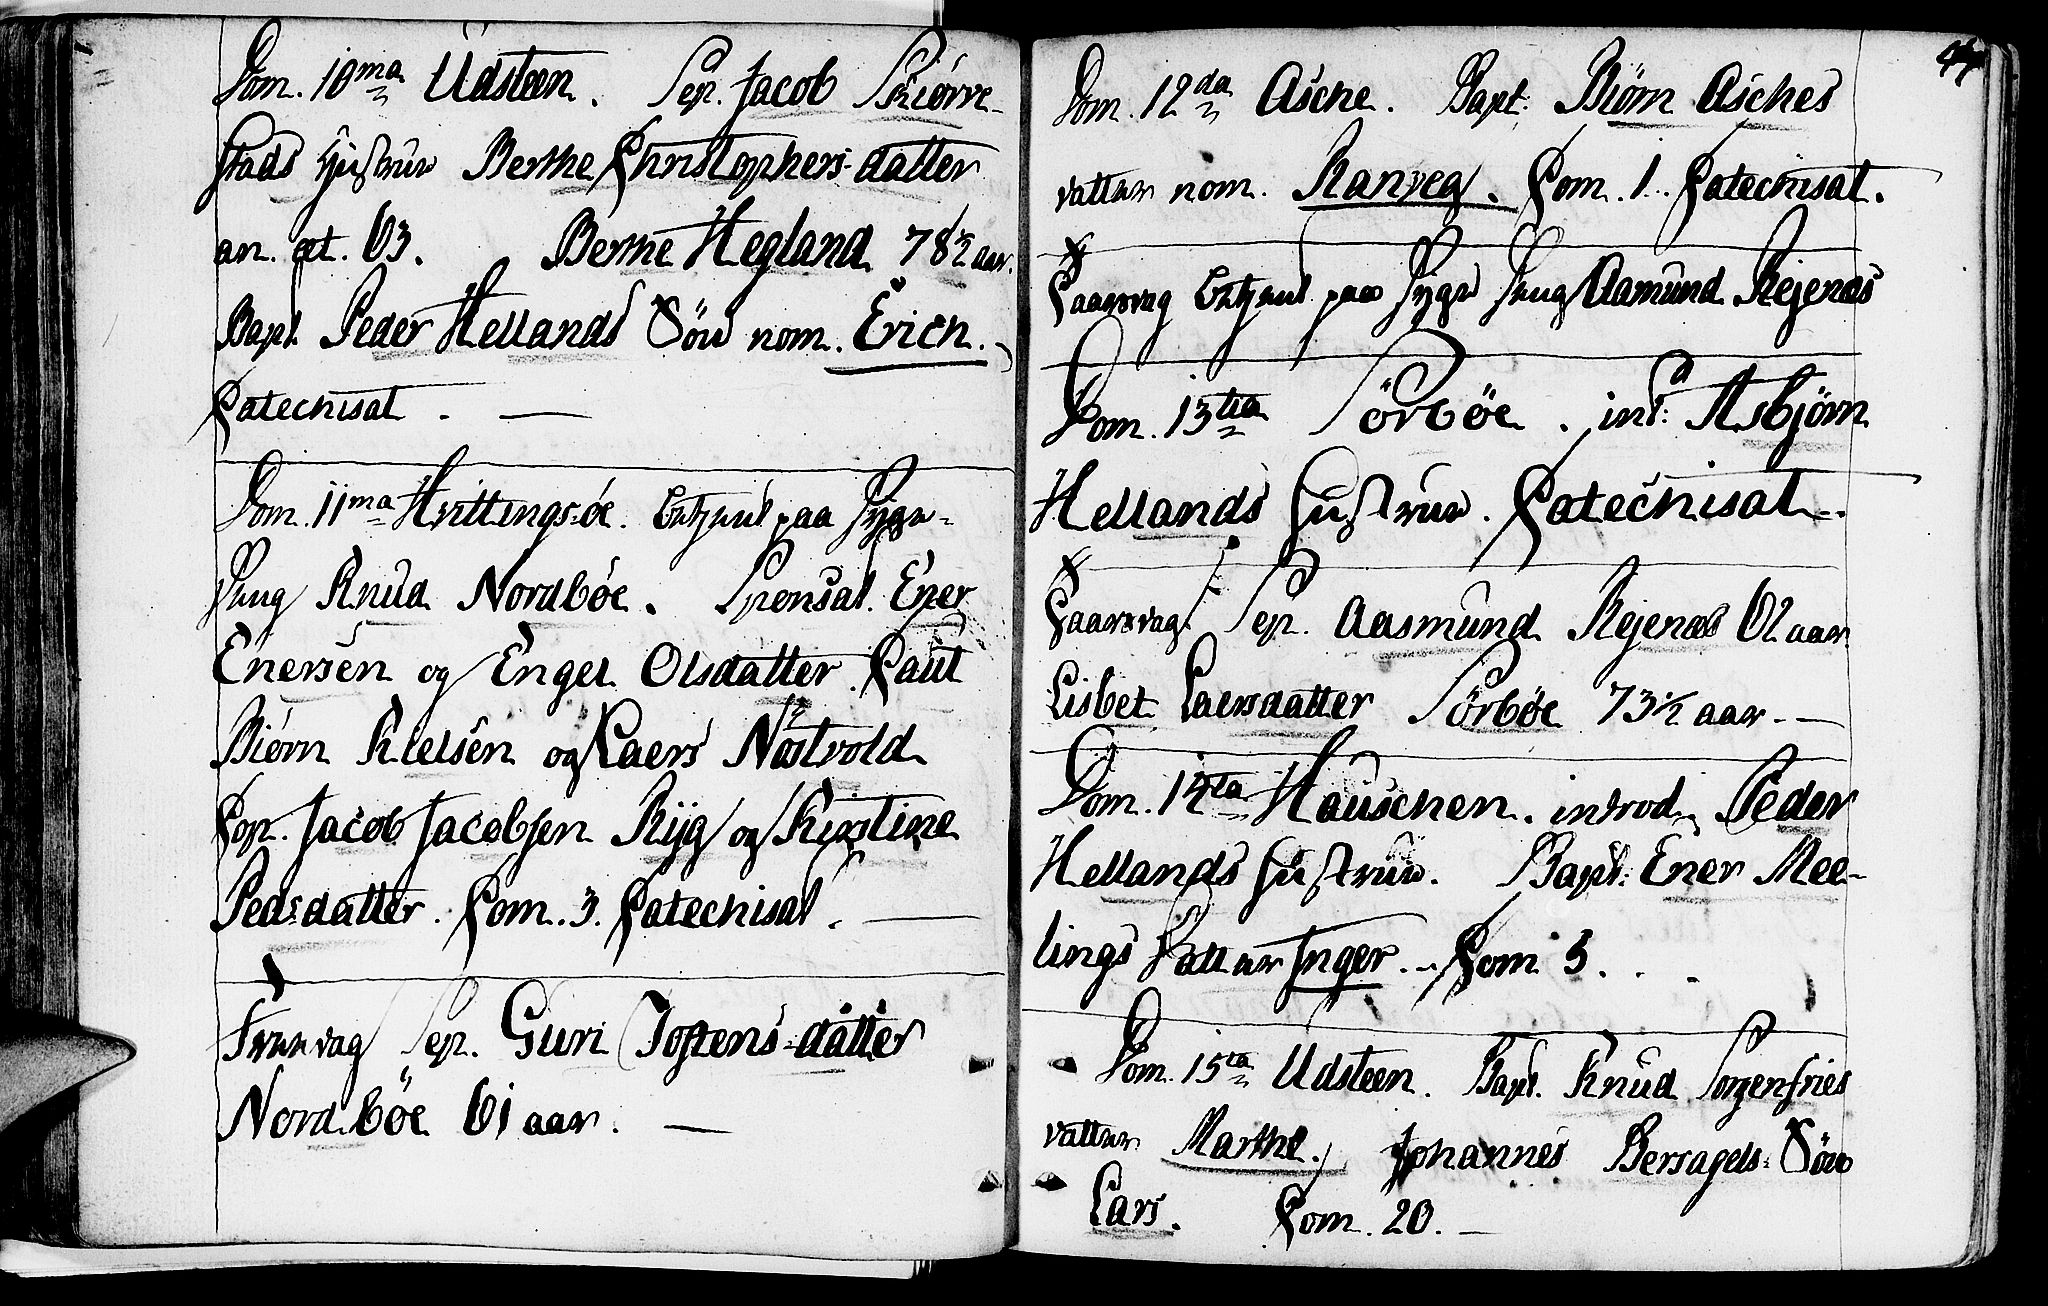 Dom. 10ma Udsteen. Sep. Jacob Skiørve-
stads Hustrue Berthe Christophers-datter
an. æt. 63. Berthe Hegland 78½ aar.
Bapt. Peder Hellands Søn nom. Erich.
Catechisat. —
Dom. 11ma Hvittingsøe. betient paa Syge-
Seng Knud Nordbøe. Sponsal. Ener
Enersen og Engel Olsdatter. Caut
Biørn Kielsen og Laers Nøstvold
Cop. Jacob Jacobsen Ryg og Kirstine
Peds:datter. Com. 3. Catechisat. —
Fredag Sep. Guri Jostens-datter
Nordbøe 61 aar. —
44
Dom. 12da Asche. Bapt. Biørn Asches
datter nom. Ranveg. Com. 1. Catechisat.
Løversdag betient paa Syge Seng Aamund Rejenæs
Dom. 13tia Sörbøe. int: Asbjørn
Hellands Hustrue. Catechisat.
Løversdag Sep. Aasmund Rejenæs 62 aar
Lisbet Laersdatter Sörbøe 73½ aar. —
Dom. 14ta Hauschen. introd. Peder
Hellands Hustrue. Bapt: Ener Mee-
lings Datter Inger. Com 5.
Dom. 15ta Udsteen. Bapt. Knud Sorgenfries
datter Marthe. Johannes Bersagels Søn
Lars. Com. 20. —